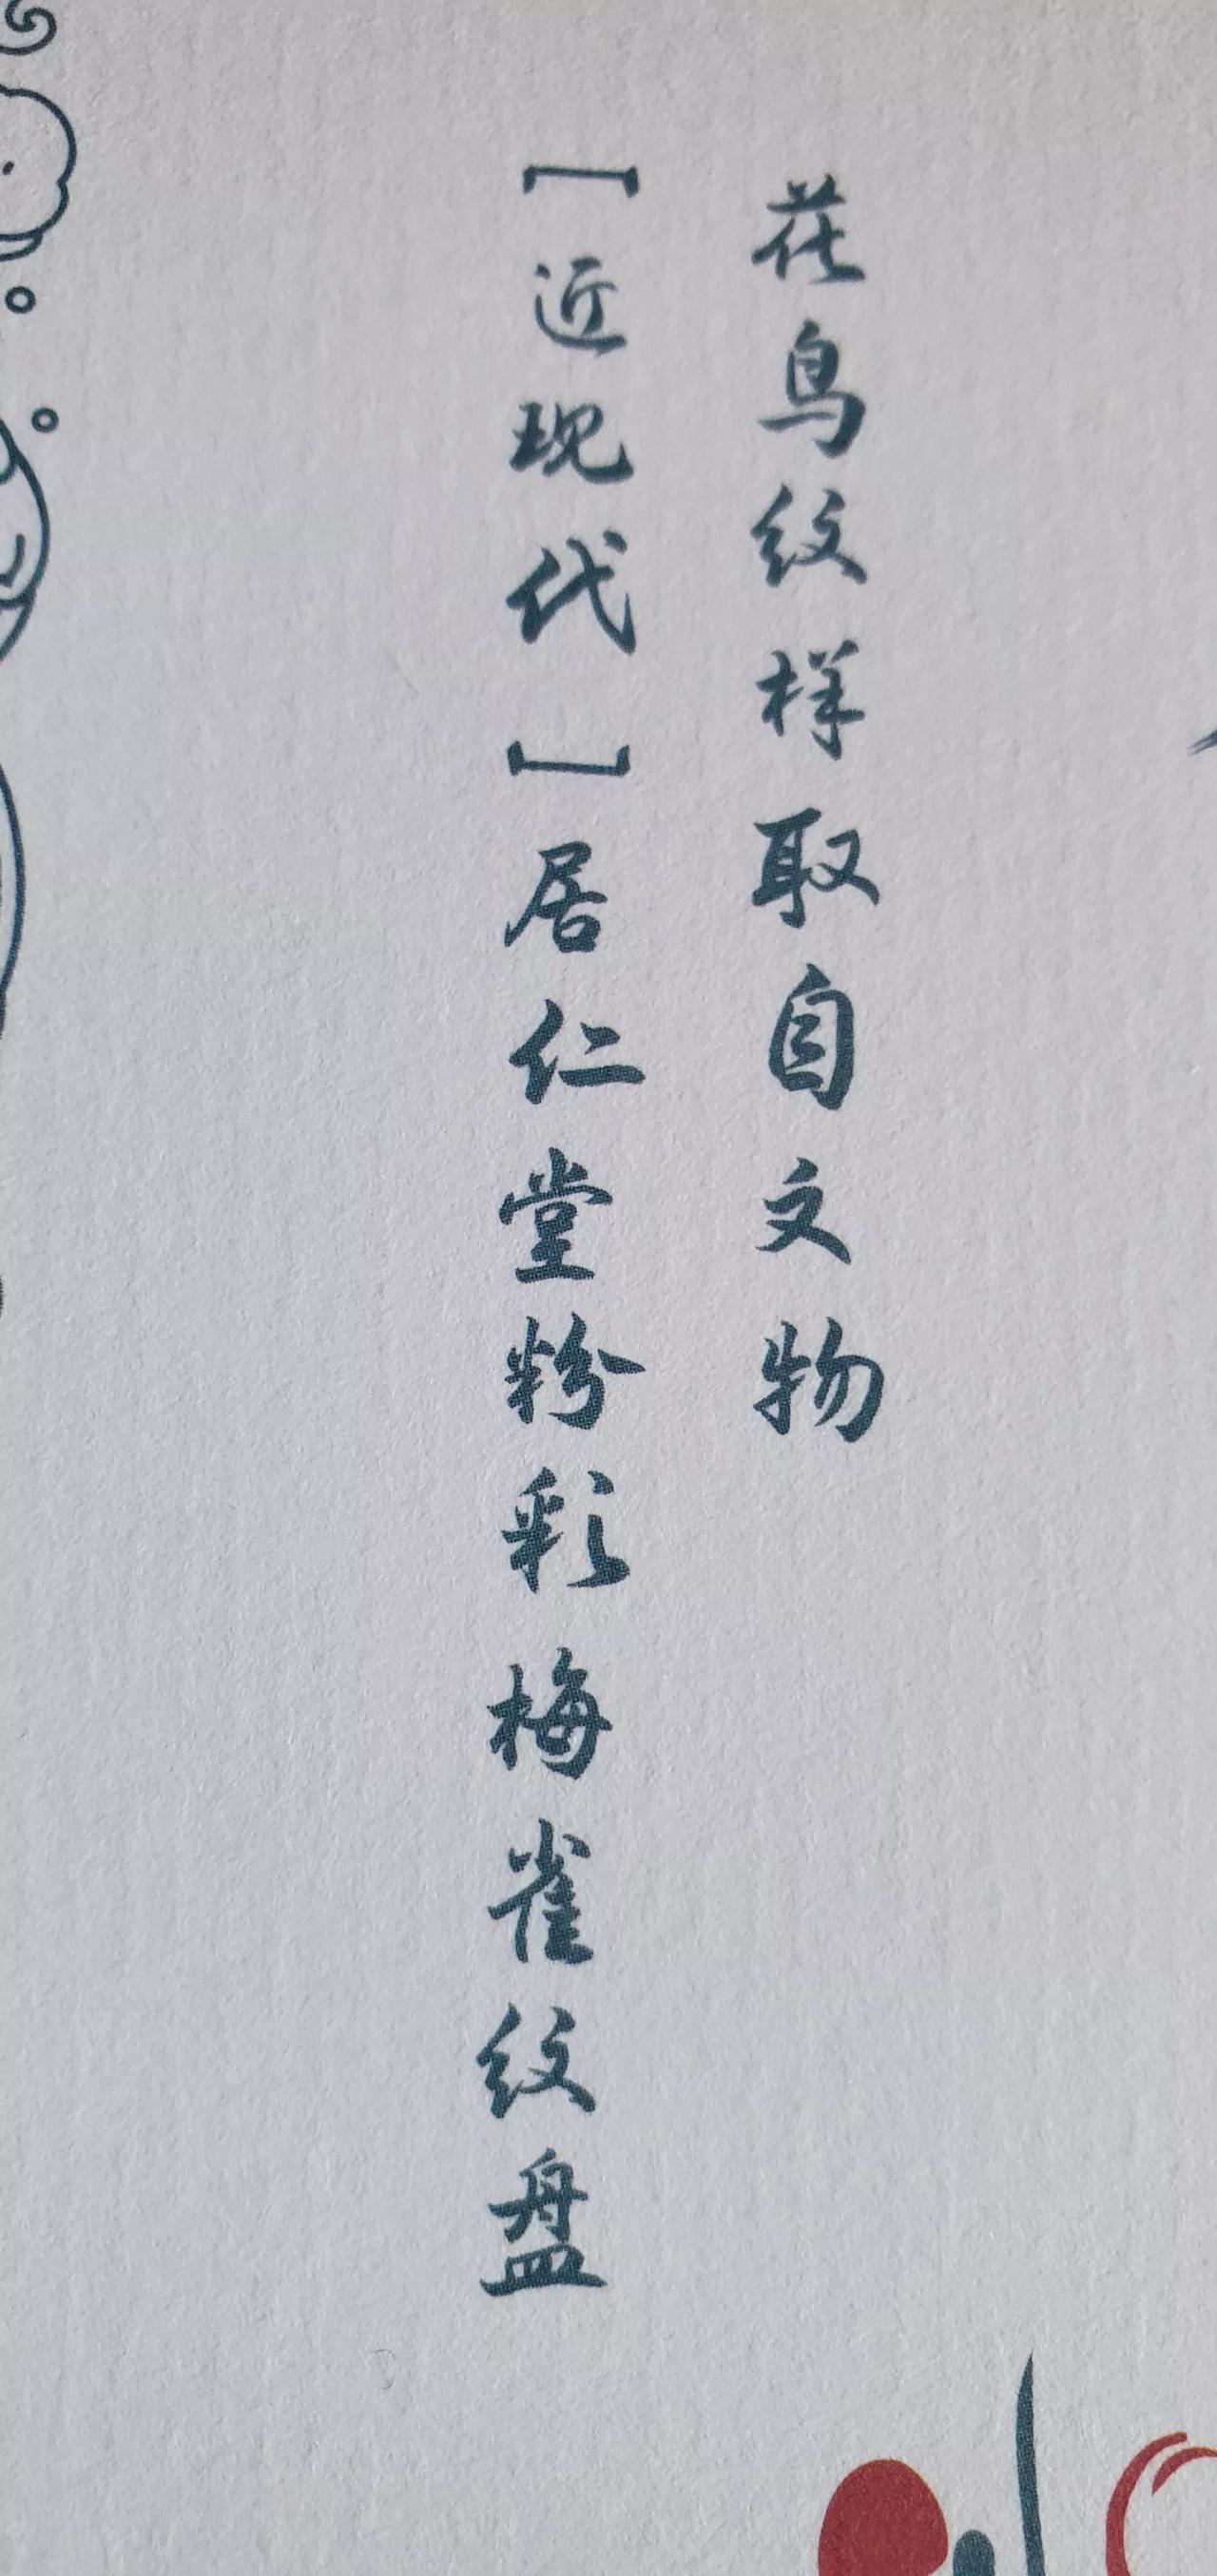 花鸟纹样取自文物
[近现代]居仁堂粉彩梅雀纹盘